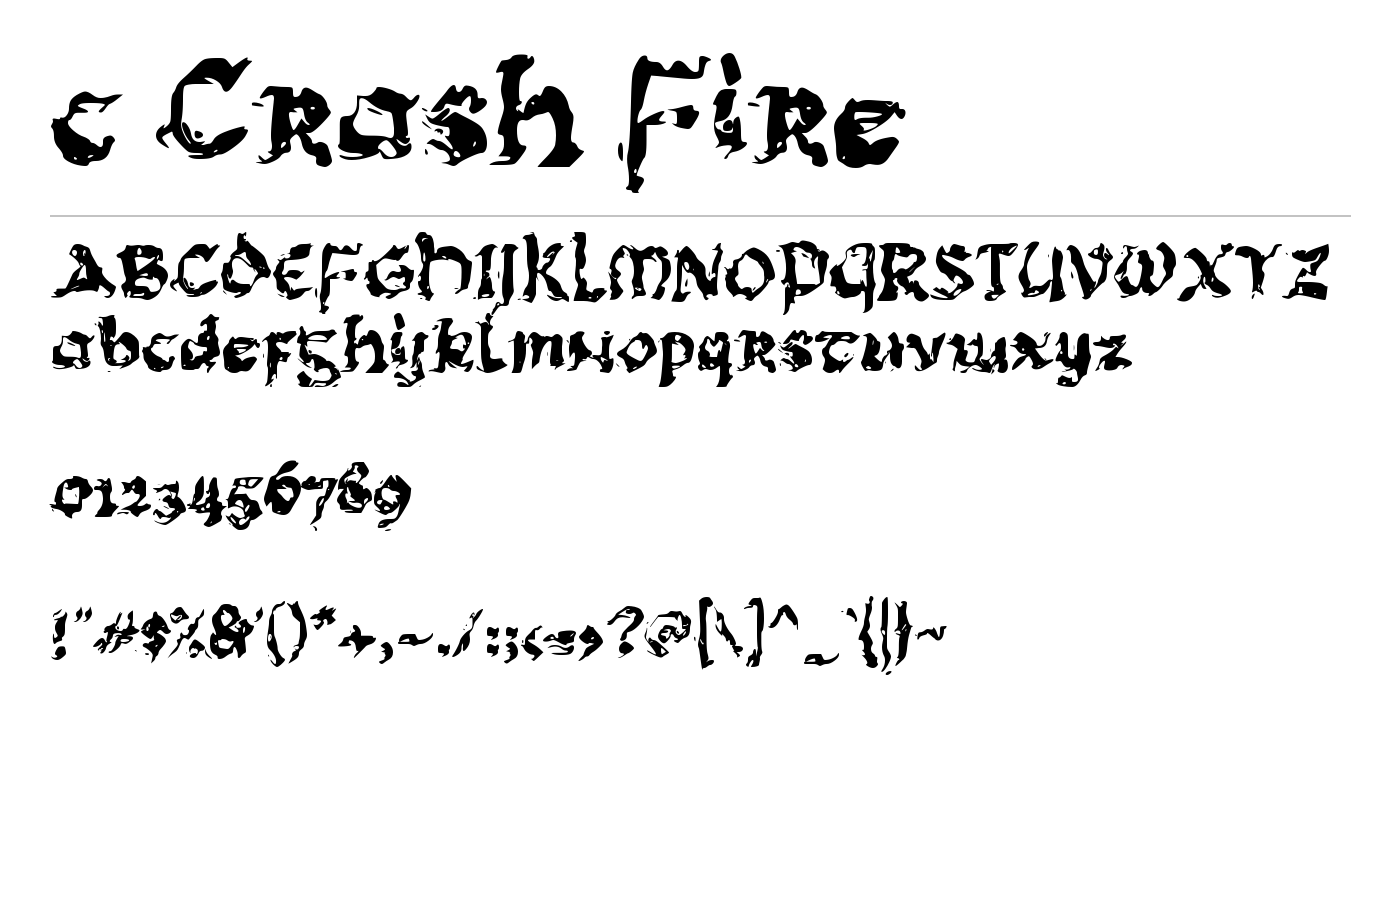 c Crash Fire
ABCDEFGHIJKLMNOPQRSTUVWXYZ
abcdefghijklmnopqrstuvwxyz
0123456789
!"#$%&'()*+,-./:;<=>?@[\]^_`{|}~